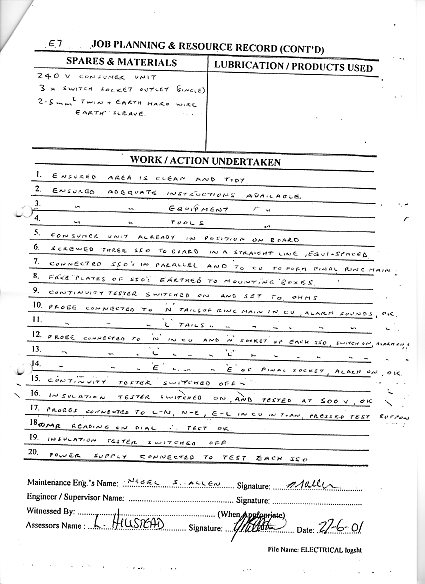 E7 JOB PLANNING & RESOURCE RECORD (CONT'D)
SPARES & MATERIALS
LUBRICATION / PRODUCTS USED
240 V CONSUMER UNIT
3 x SWITCH SOCKET OUTLET (SINGLE)
2.5mm² TWIN + EARTH HARD WIRE
EARTH SLEEVE
WORK / ACTION UNDERTAKEN
1. ENSURED AREA IS CLEAN AND TIDY
2. ENSURED ADEQUATE INSTRUCTIONS AVAILABLE
3. " " EQUIPMENT "
4. " " TOOLS "
5. CONSUMER UNIT ALREADY IN POSITION ON BOARD
6. SCREWED THREE SSO TO BOARD IN A STRAIGHT LINE, EQUI-SPACED
7. CONNECTED SSO'S IN PARALLEL AND TO CU TO FORM FINAL RING MAIN
8. FACE PLATES OF SSO'S EARTHED TO MOUNTING BOXES
9. CONTINUITY TESTER SWITCHED ON AND SET TO OHMS
10. PROBE CONNECTED TO N TAILS OF RING MAIN IN CU, ALARM SOUNDS, OK
11. " " " L TAILS " " " " "
12. PROBE CONNECTED TO 'N' IN CU AND N SOCKET OF EACH SSO, SWITCH ON, ALARM ON
13. " " " L " " L " "
14. " " " E " " " E OF FINAL SOCKET, ALARM ON, OK
15. CONTINUITY TESTER SWITCHED OFF
16. INSULATION TESTER SWITCHED ON AND TESTED AT 500 V, OK
17. PROBES CONNECTED TO L-N, N-E, E-L IN CU IN TURN, PRESSED TEST BUTTON
18. READING ON DIAL ∴ TEST OK
19. INSULATION TESTER SWITCHED OFF
20. POWER SUPPLY CONNECTED TO TEST EACH SSO
Maintenance Eng.'s Name: NIGEL S. ALLEN Signature: N Allen
Engineer / Supervisor Name: Signature:
Witnessed By: (When Appropriate)
Assessors Name: L. HILLSTEAD Signature: Date: 27-6-01
File Name: ELECTRICAL logsht